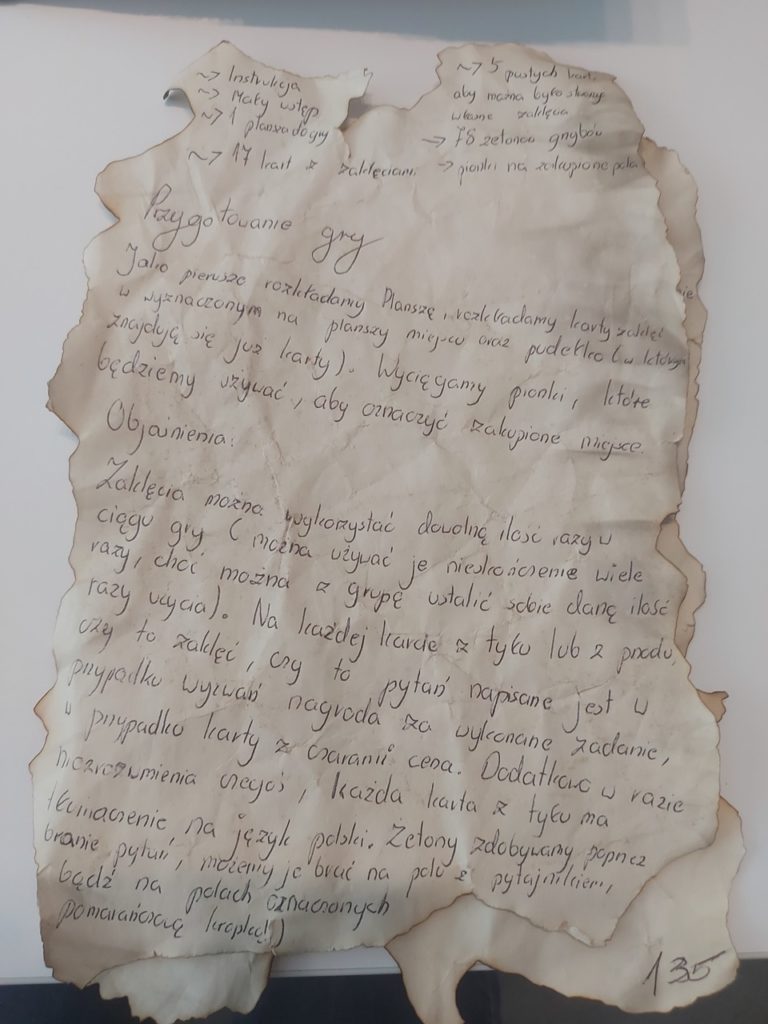 ~> Instrukcja
~> Mały wstęp
~> 1 plansza do gry
~> 17 kart z zaklęciami
~> 5 pustych kart,
aby można było stworzyć
własne zaklęcia
-> 78 żetonów grzybów
-> pionki na zakupione pola
Przygotowanie gry
Jako pierwsze rozkładamy Planszę, rozkładamy karty zaklęć
w wyznaczonym na planszy miejscu oraz pudełko (w którym
znajdują się już karty). Wyciągamy pionki, które
będziemy używać, aby oznaczyć zakupione miejsce.
Objaśnienia:
Zaklęcia można wykorzystać dowolną ilość razy w
ciągu gry (można używać je nieskończenie wiele
razy, choć można z grupę ustalić sobie daną ilość
razy użycia). Na każdej karcie z tyłu lub z przodu,
czy to zaklęć, czy to pytań napisane jest w
przypadku wyzwań nagroda za wykonane zadanie,
w przypadku karty z czarami cena. Dodatkowo w razie
niezrozumienia czegoś, każda karta z tyłu ma
tłumaczenie na język polski. Żetony zdobywamy poprzez
branie pytań, możemy je brać na polu z pytajnikiem,
bądź na polach oznaczonych
pomarańczową kropką!)
135